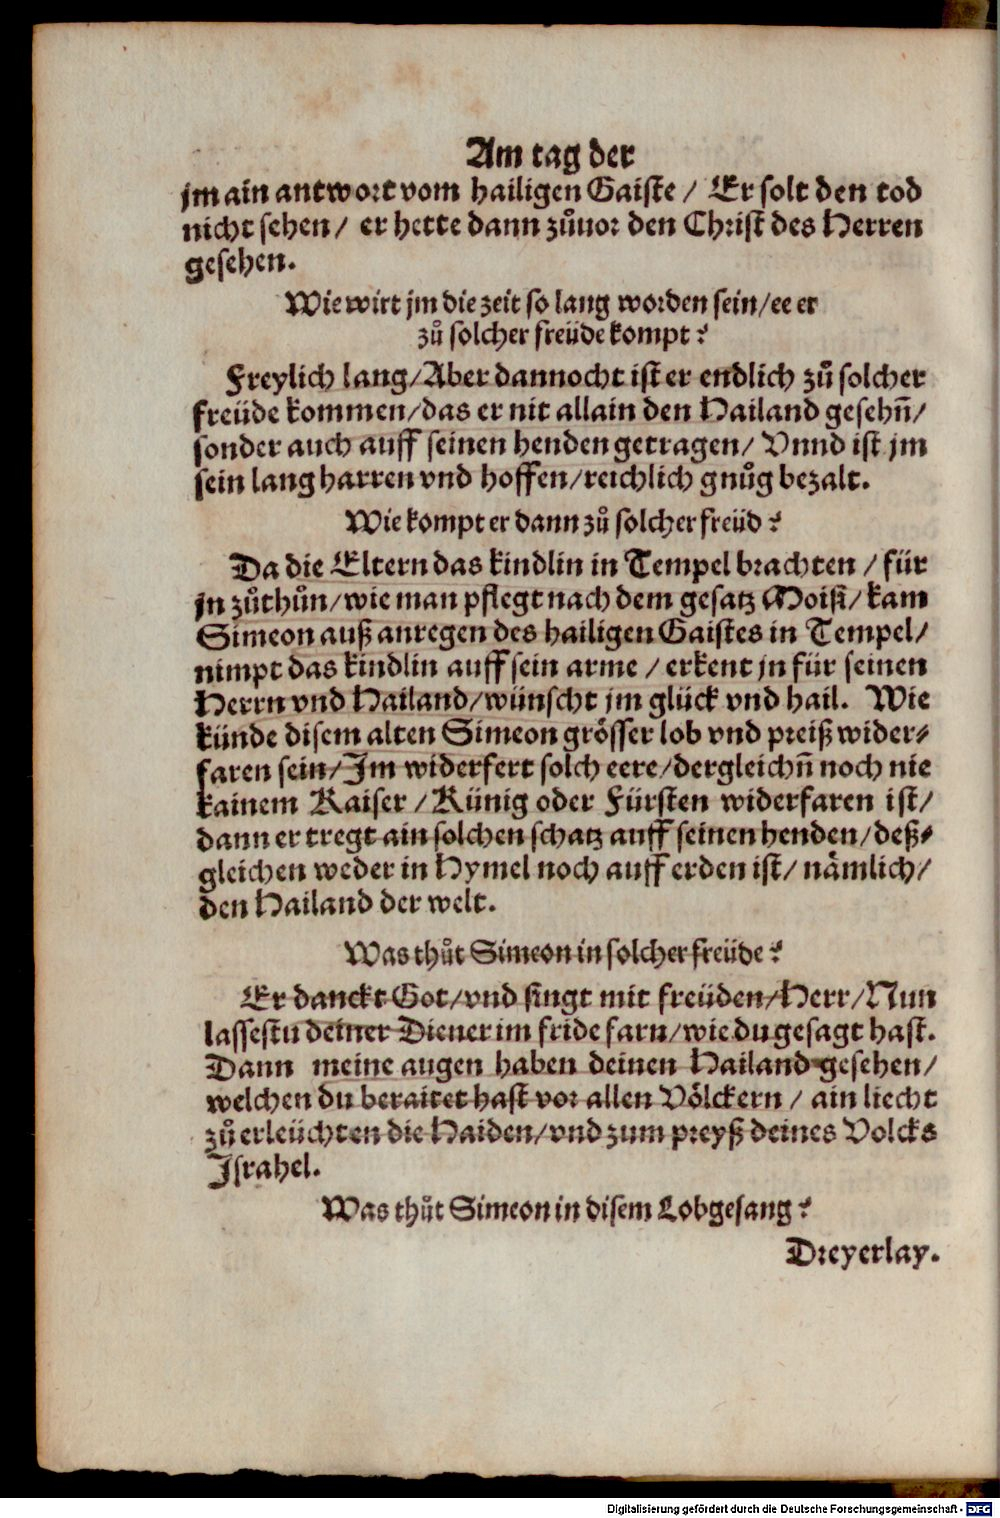 Am tag der
jm ain antwort vom hailigen Gaiste / Er solt den tod
nicht sehen / er hette dann zůuor den Christ des Herren
gesehen.
Wie wirt jm die zeit so lang worden sein / ee er
zů solcher freüde kompt?
Freylich lang / Aber dannocht ist er endlich zů solcher
freüde kommen / das er nit allain den Hailand gesehn̄ /
sonder auch auff seinen henden getragen / Vnnd ist jm
sein lang harren vnd hoffen / reichlich gnůg bezalt.
Wie kompt er dann zů solcher freüd?
Da die Eltern das kindlin in Tempel brachten / für
jn zůthůn / wie man pflegt nach dem gesatz Moisi / kam
Simeon auß anregen des hailigen Gaistes in Tempel /
nimpt das kindlin auff sein arme / erkent jn für seinen
Herrn vnd Hailand / wünscht jm glück vnd hail. Wie
künde disem alten Simeon grösser lob vnd preiß wider-
faren sein / Jm widerfert solch eere / dergleichn̄ noch nie
kainem Kaiser / Künig oder Fürsten widerfaren ist /
dann er tregt ain solchen schatz auff seinen henden / deß-
gleichen weder in Hymel noch auff erden ist / nämlich /
den Hailand der welt.
Was thůt Simeon in solcher freüde?
Er danckt Got / vnd singt mit freüden / Herr / Nun
lassestu deiner Diener im fride farn / wie du gesagt hast.
Dann meine augen haben deinen Hailand gesehen /
welchen du beraitet hast vor allen Völckern / ain liecht
zů erleüchten die Haiden / vnd zum preyß deines Volcks
Jsrahel.
Was thůt Simeon in disem Lobgesang?
Dreyerlay.
Digitalisierung gefördert durch die Deutsche Forschungsgemeinschaft - DFG